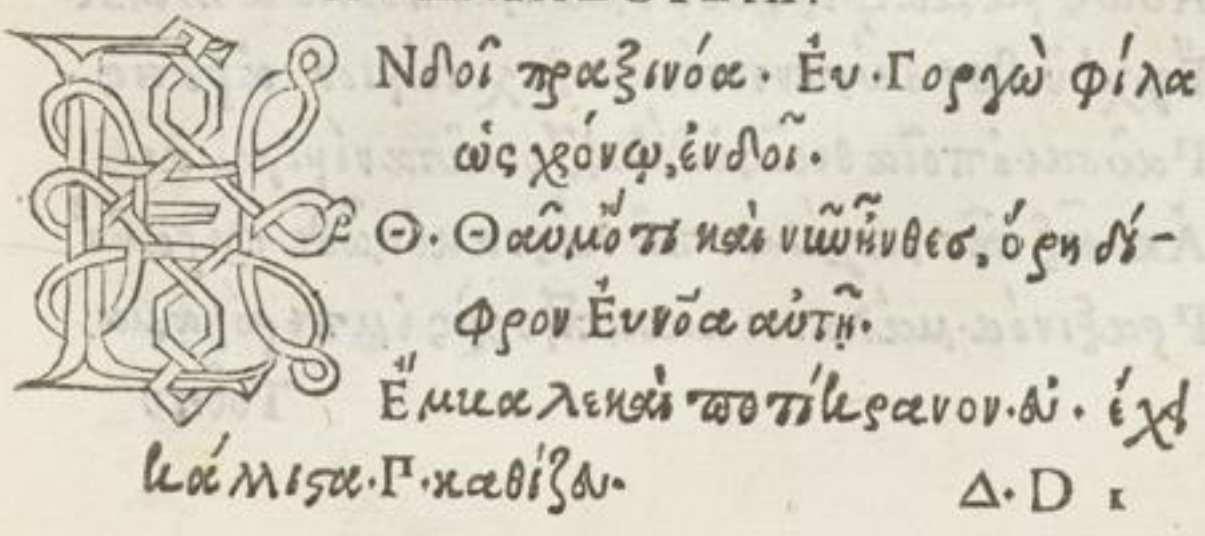 ΕΝδοῖ πραξινόα· Ἐυ·Γοργὼ φίλα
ὡς χρόνῳ, ἐνδοῖ·
Θ·Θαῦμ' ὅτι καὶ νῦν ἦνθεσ, ὅρη δί-
φρον Ἐυνόα αὐτῇ·
Ἔμβαλε καὶ ποτίκρανον·ευ· ἔχει
κάλλιστα·Γ·καθίζευ·
Δ·D ι